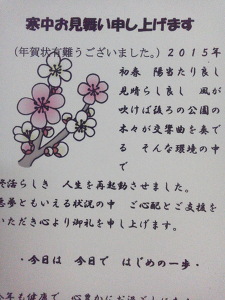 寒中お見舞い申し上げます
(年賀状有難うございました。)2015年
初春 陽当たり良し
見晴らし良し 風が
吹けば後ろの公園の
木々が交響曲を奏で
る そんな環境の中
で
終活らしき 人生を再起動させました。
悪夢ともいえる状況の中 ご心配とご支援を
いただき心より御礼を申し上げます。
・今日は 今日で はじめの一歩・
今年も健康で 心豊かにお過ごし